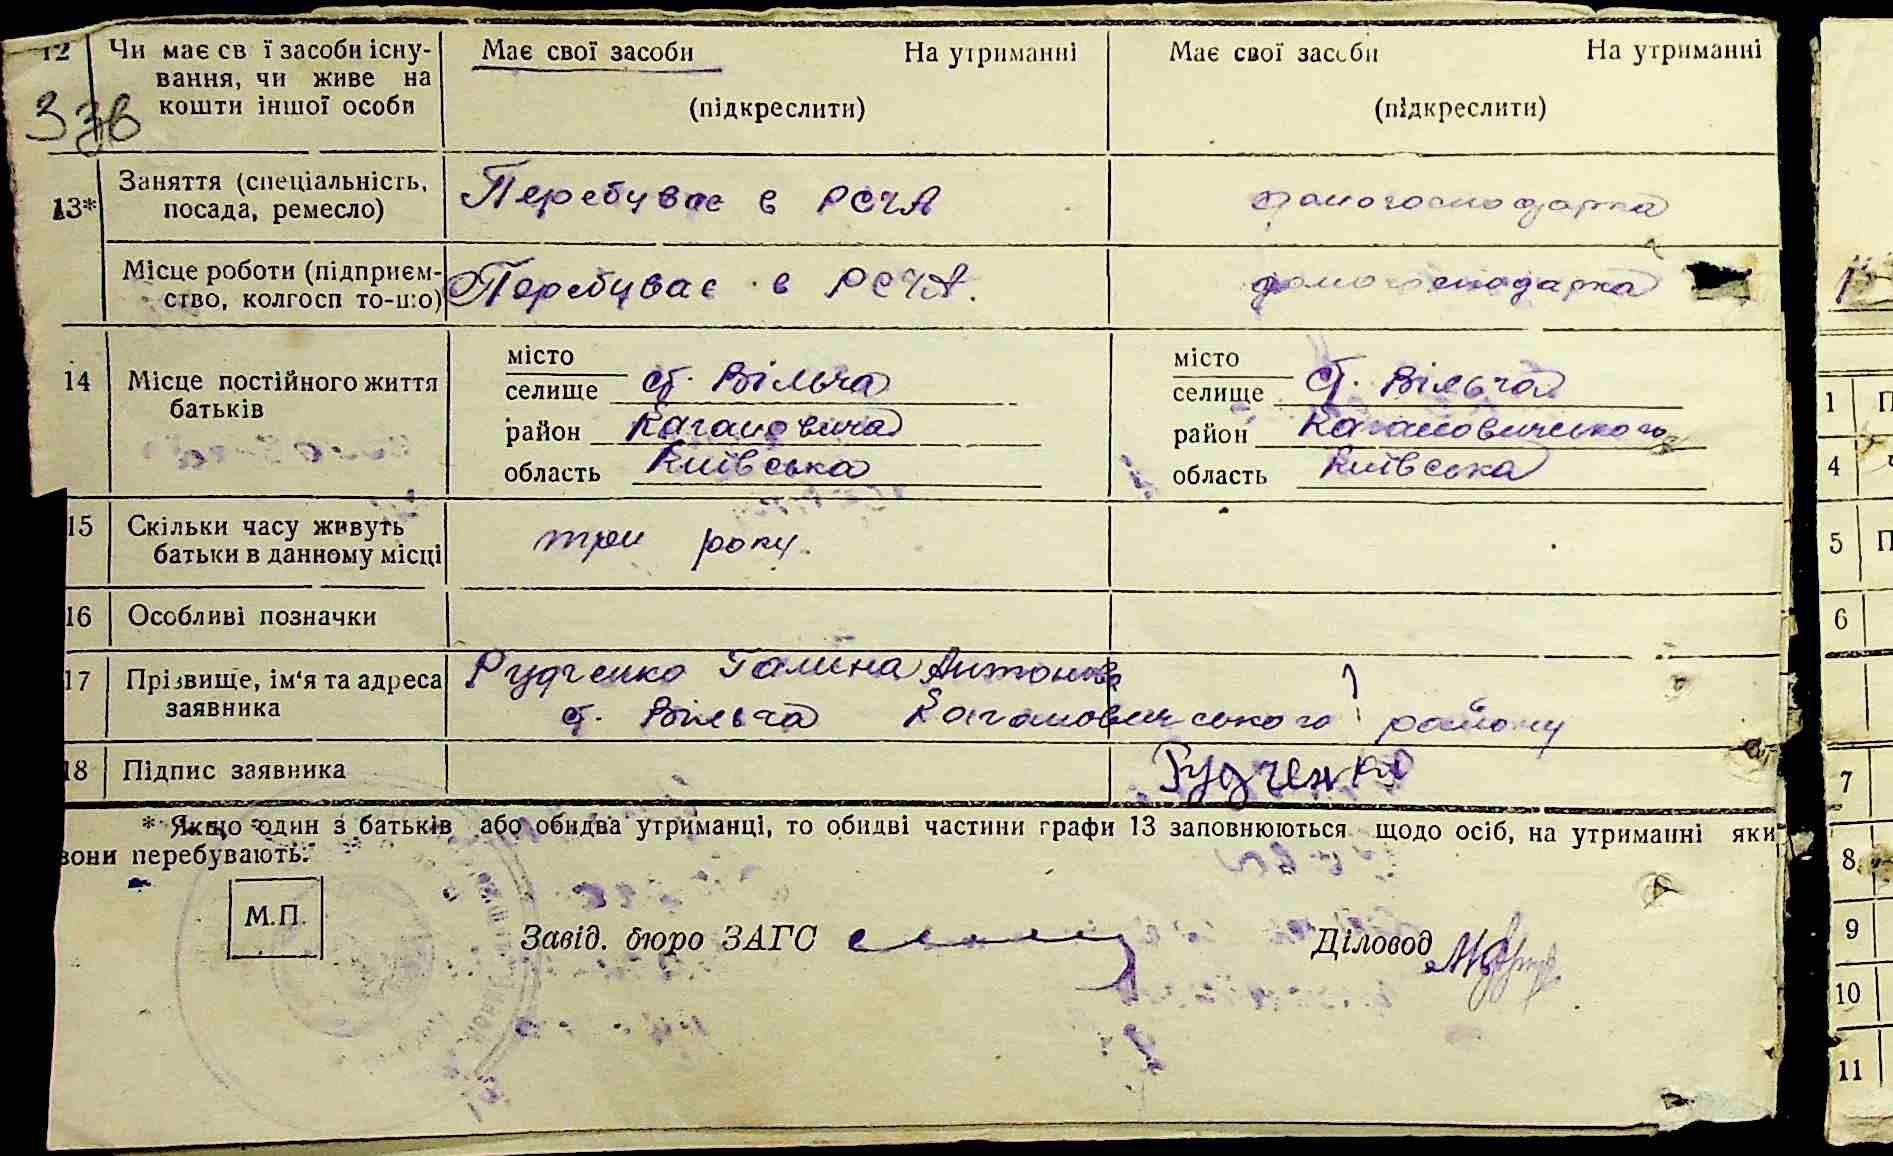 12 Чи має св ї засоби існу- Має свої засоби На утриманні Має свої засоби На утриманні
вання, чи живе на
33в кошти іншої особи (підкреслити) (підкреслити)
13* Заняття (спеціальність, Перебуває в РСЧА домогосподарка
посада, ремесло)
Місце роботи (підприєм- Перебуває в РСЧА. домогосподарка
ство, колгосп то-що)
14 Місце постійного життя батьків
місто місто
селище ст. Вільча селище ст. Вільча
район Кагановича район Кагановичського
область Київська область Київська
15 Скільки часу живуть три роки.
батьки в данному місці
16 Особливі позначки
17 Прізвище, ім'я та адреса Рудченко Галина Антонов
заявника ст. Вільча Кагановичського району
18 Підпис заявника Рудченко
* Якщо один з батьків або обидва утриманці, то обидві частини графи 13 заповнюються щодо осіб, на утриманні яки
вони перебувають.
М.П. Завід. бюро ЗАГС Діловод
1 П
4
5 П
6
7
8
9
10
11